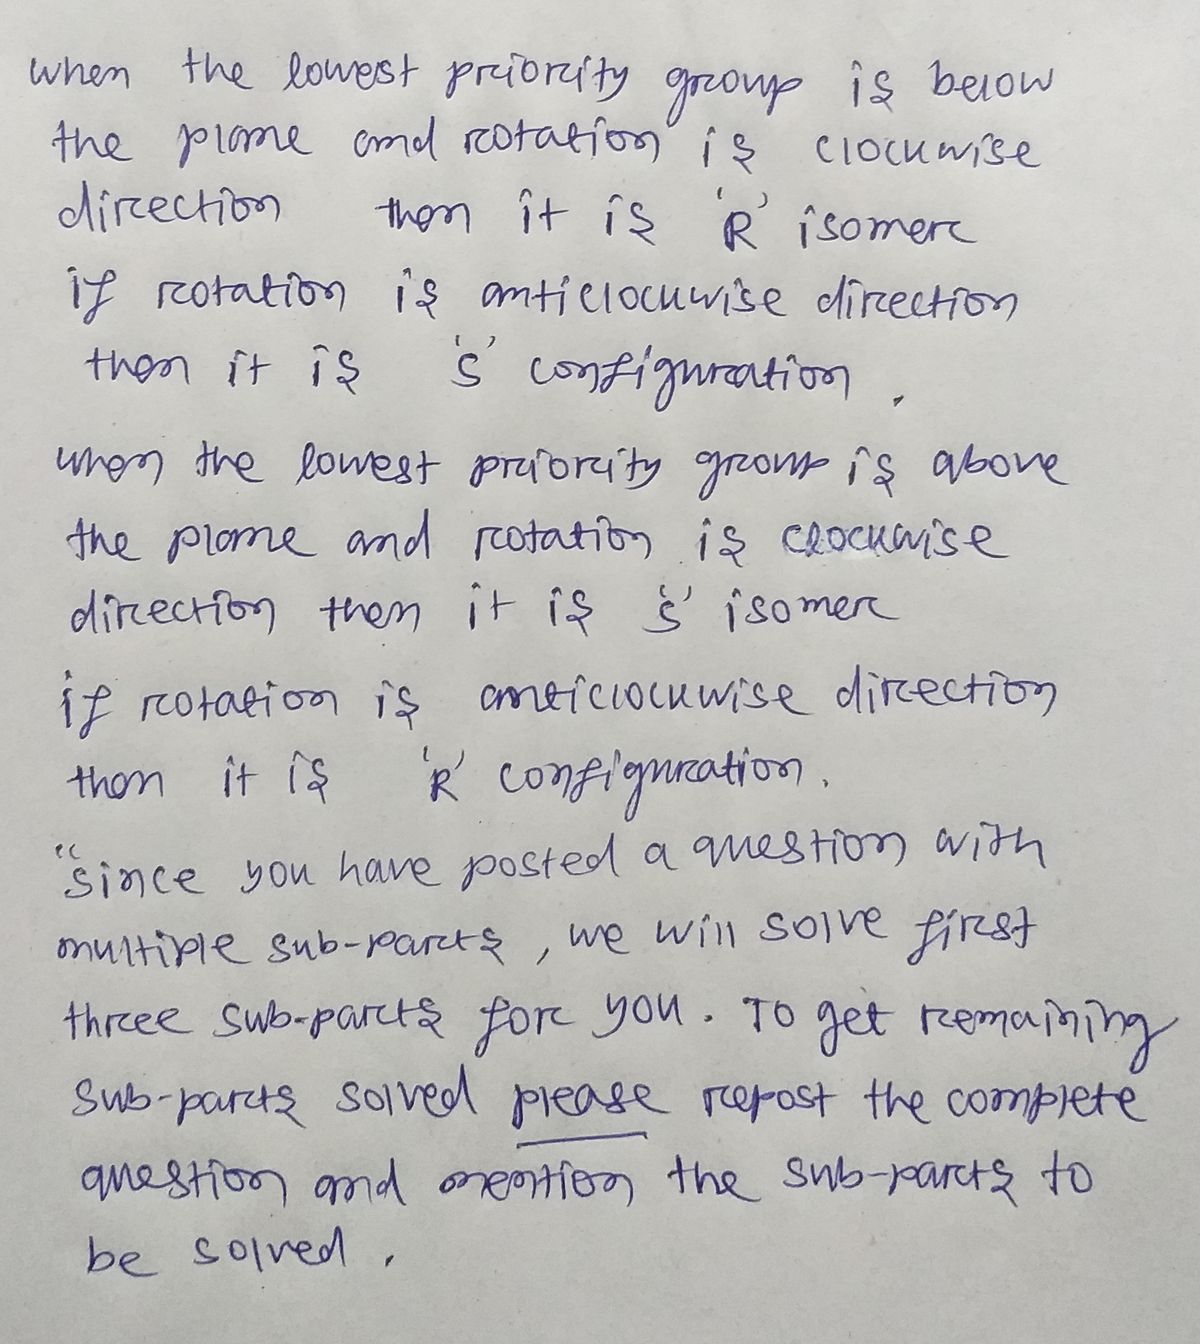 when the lowest priority group is below
the plane and rotation is clockwise
direction then it is 'R' isomer
if rotation is anticlockwise direction
then it is 's' configuration.
when the lowest priority group is above
the plane and rotation is clockwise
direction then it is 's' isomer
if rotation is anticlockwise direction
then it is 'R' configuration.
"since you have posted a question with
multiple sub-parts, we will solve first
three sub-parts for you. To get remaining
sub-parts solved please repost the complete
question and mention the sub-parts to
be solved.